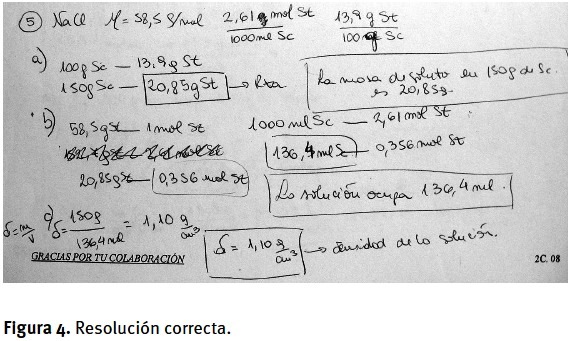 5 NaCl M = 58,5 g/mol 2,61 mol St / 1000 ml Sc 13,9 g St / 100 g Sc
a) 100g Sc — 13,9g St
150g Sc — 20,85g St → Rta
La masa de soluto en 150g de Sc. es 20,85g.
b) 58,5g St — 1 mol St
20,85g St — 0,356 mol St
1000 ml Sc — 2,61 mol St
136,4 ml Sc — 0,356 mol St
La solución ocupa 136,4 ml.
δ = m/V c) δ = 150g / 136,4 ml = 1,10 g/cm³
δ = 1,10 g/cm³ → densidad de la solución.
GRACIAS POR TU COLABORACIÓN 2C. 08
Figura 4. Resolución correcta.